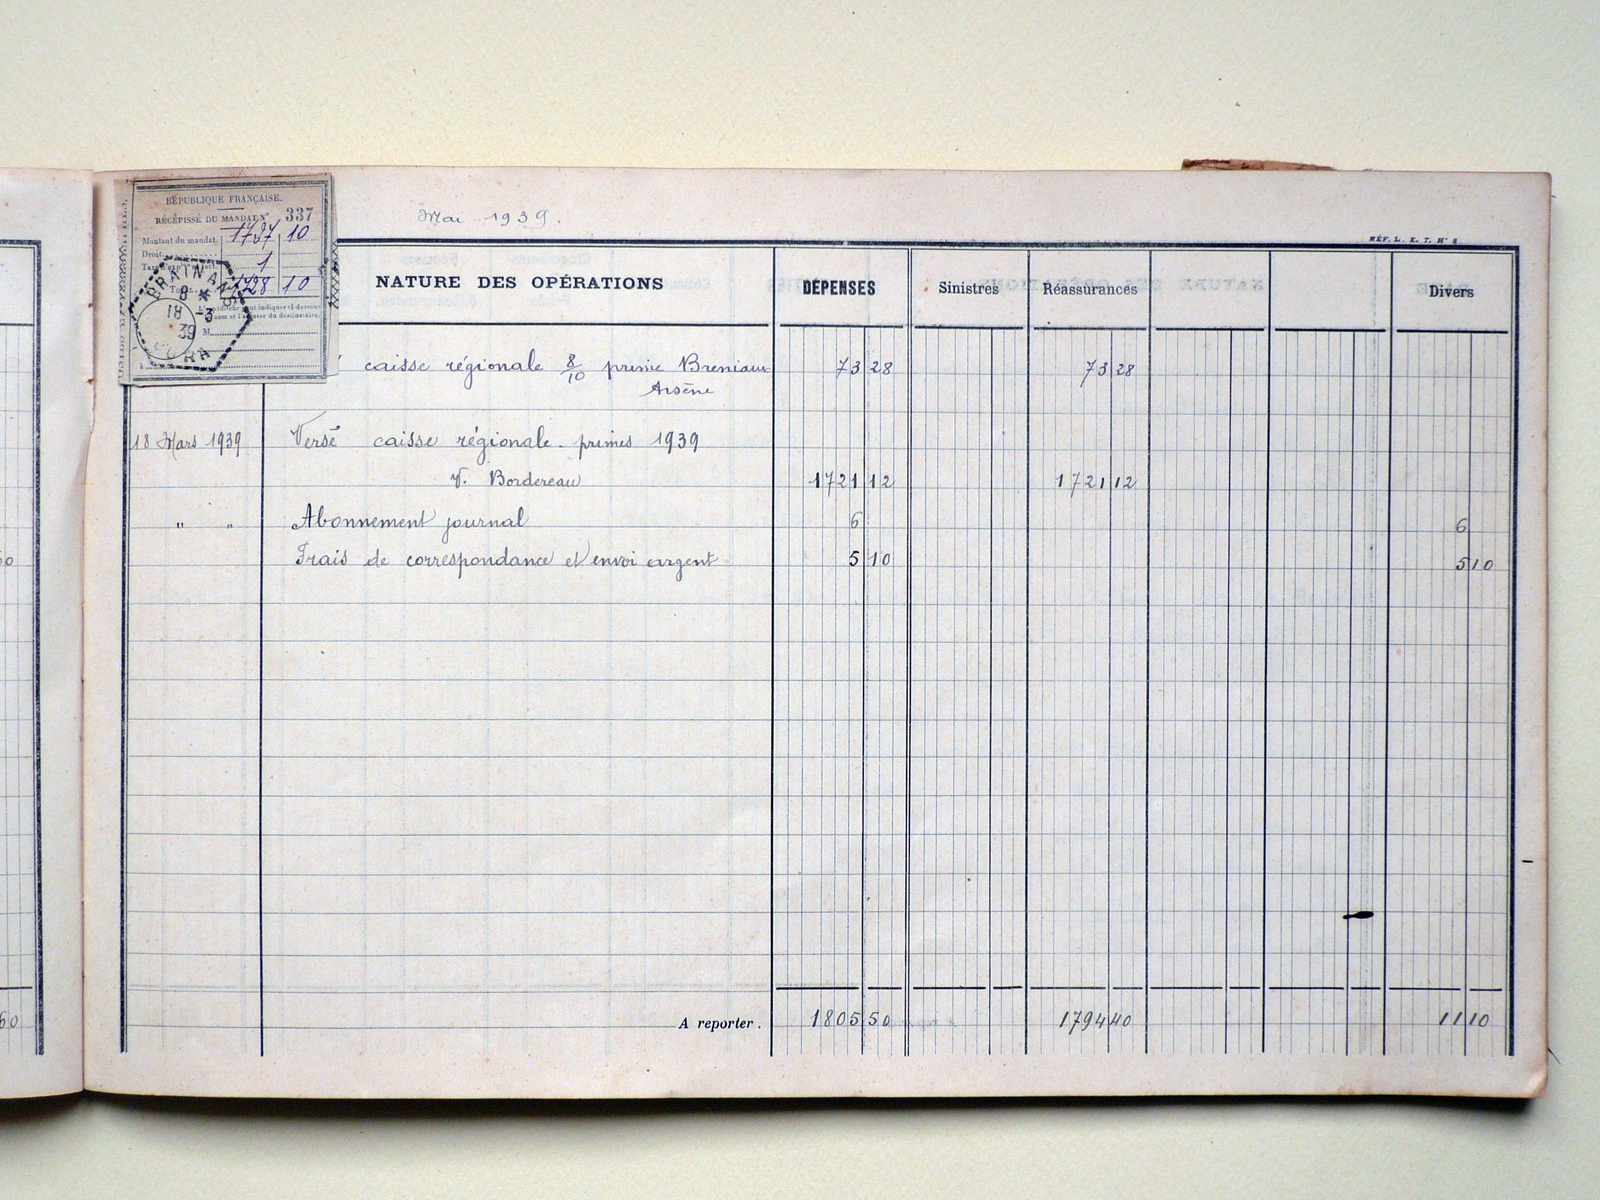 RÉPUBLIQUE FRANÇAISE.
RÉCÉPISSÉ DU MANDAT N° 337
Montant du mandat. 1727 10
Droit 1
Total 1728 10
BRAINANS
8 *
18 -3
39
JURA
Mai 1939.
NATURE DES OPÉRATIONS DÉPENSES Sinistres Réassurances Divers
caisse régionale 8/10 prime Breniaux 73 28 73 28
Arsène
18 Mars 1939 Versé caisse régionale. primes 1939
V. Bordereau 1721 12 1721 12
" " Abonnement journal 6 6
Frais de correspondance et envoi argent 5 10 5 10
A reporter. 1805 50 1794 40 11 10